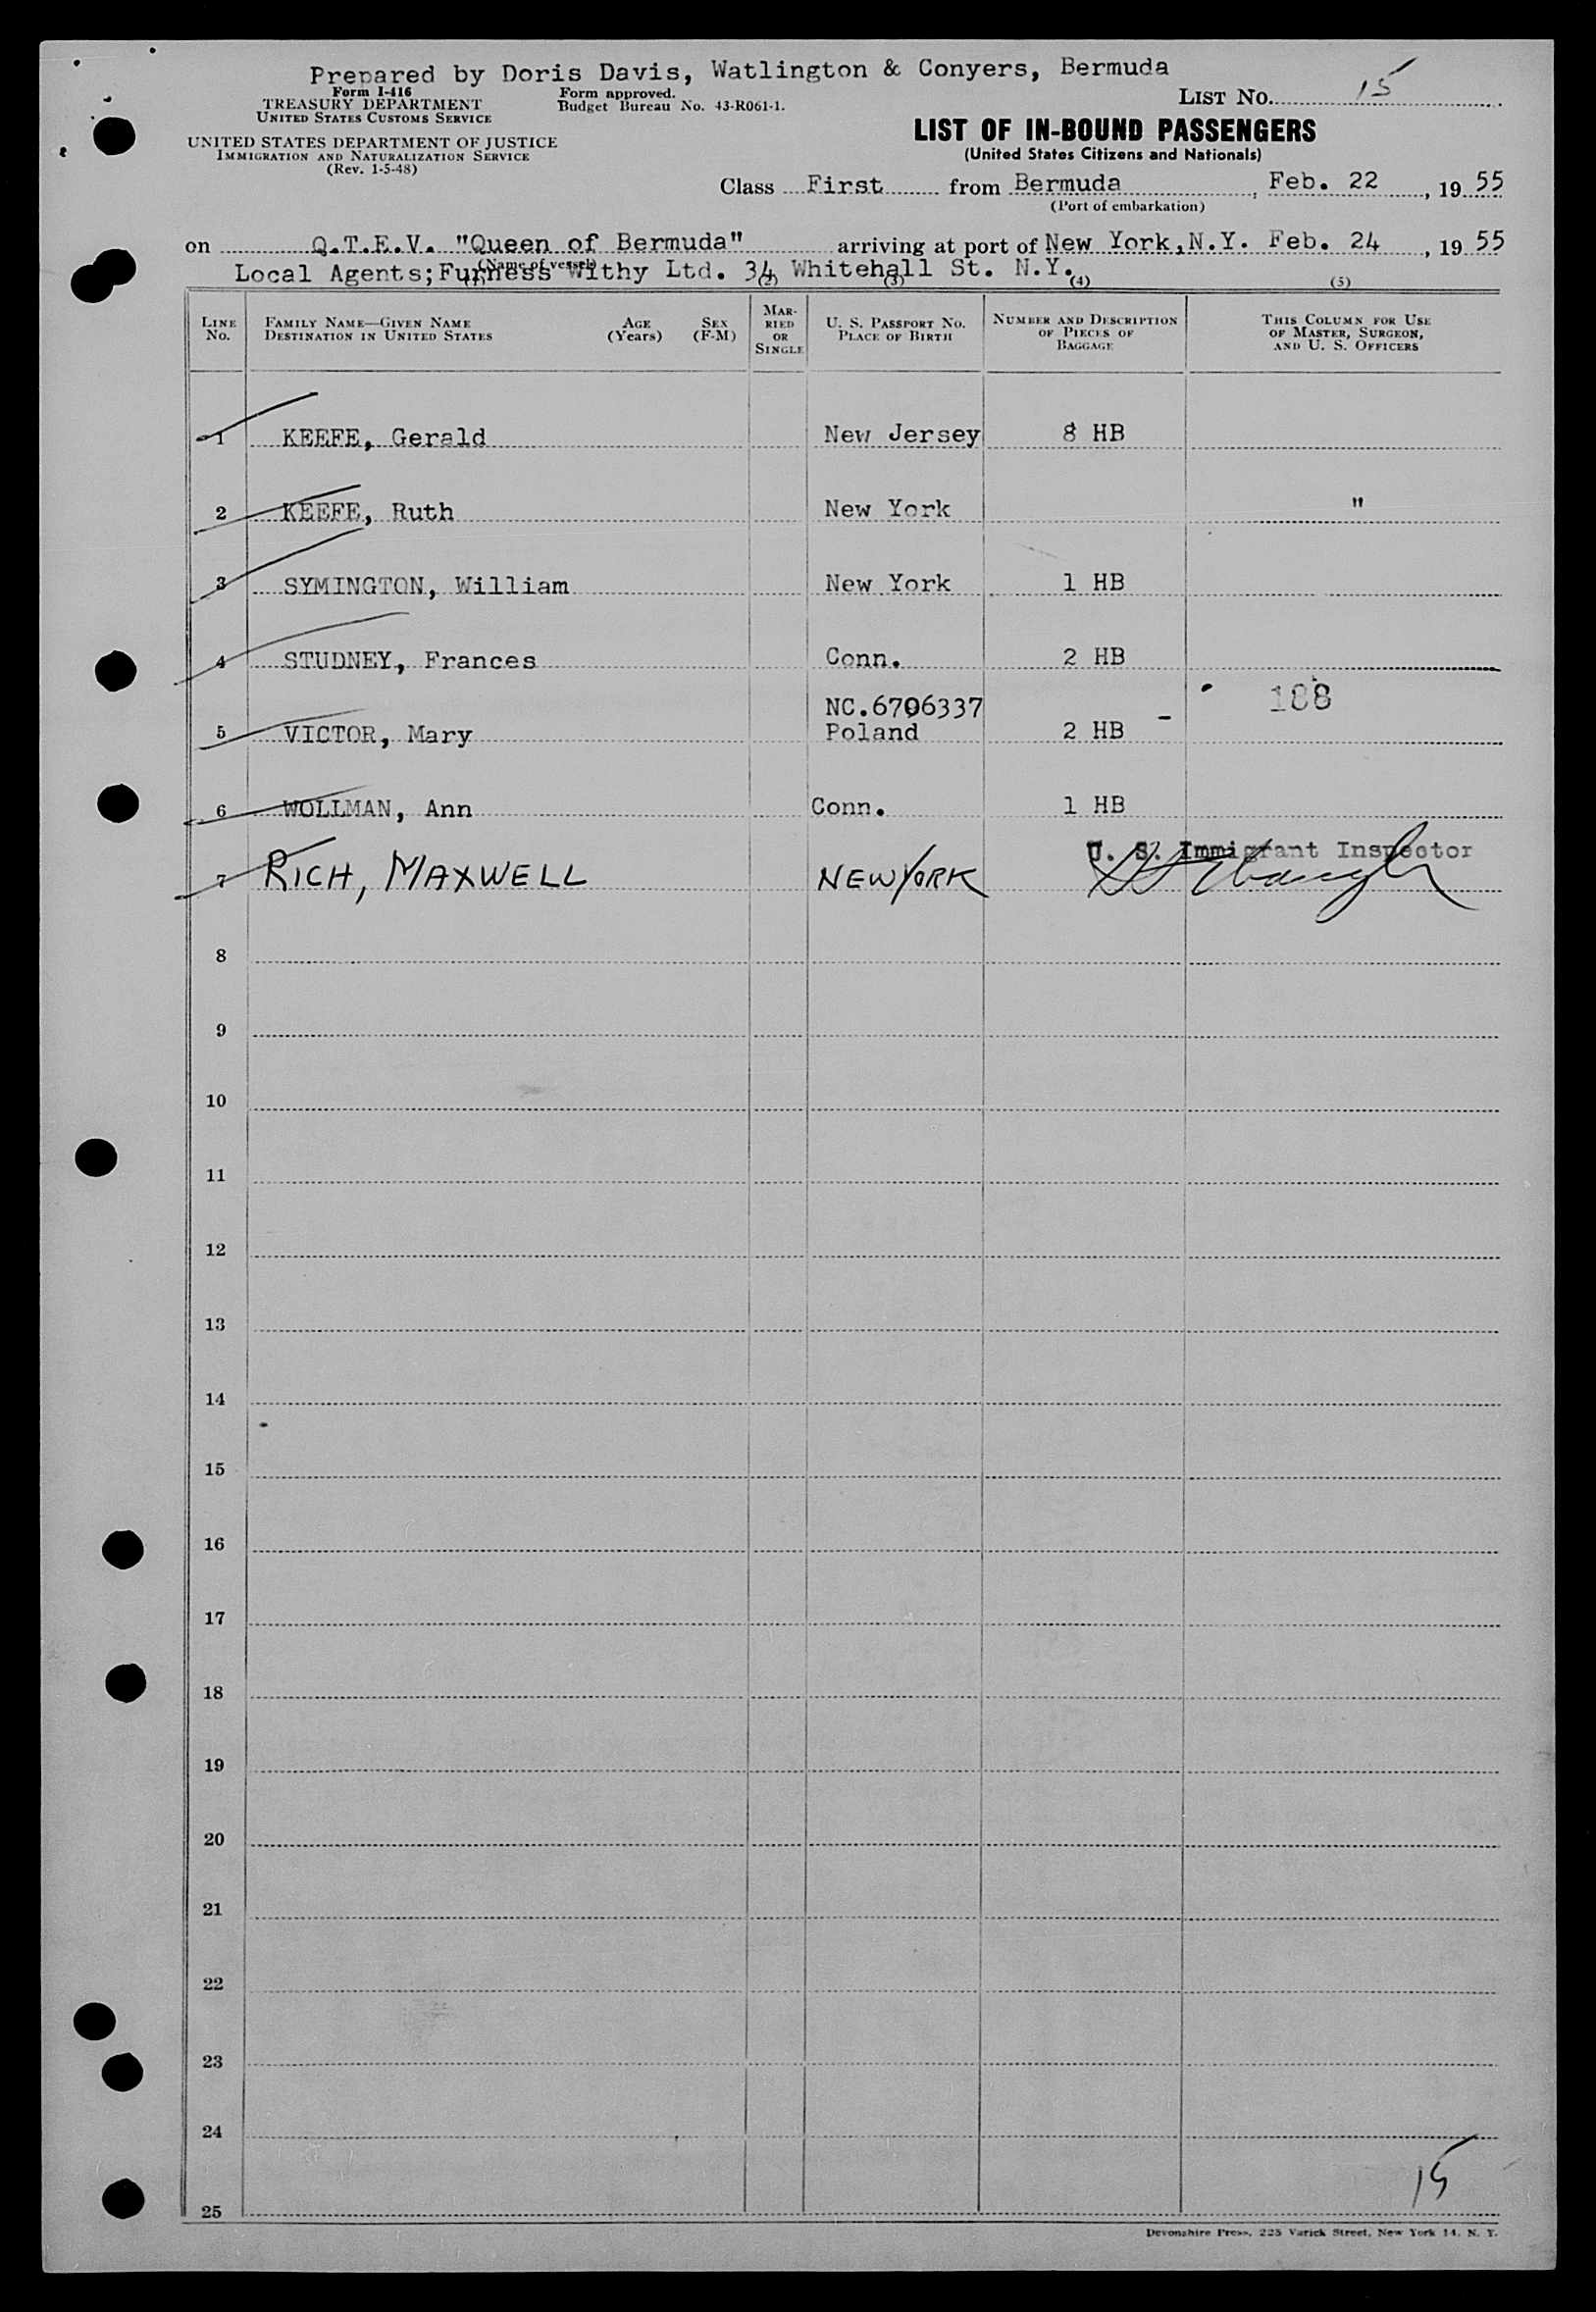 Prepared by Doris Davis, Watlington & Conyers, Bermuda
Form I-416
TREASURY DEPARTMENT
UNITED STATES CUSTOMS SERVICE
Form approved.
Budget Bureau No. 43-R061-1.
LIST NO. 15
UNITED STATES DEPARTMENT OF JUSTICE
IMMIGRATION AND NATURALIZATION SERVICE
(Rev. 1-5-48)
LIST OF IN-BOUND PASSENGERS
(United States Citizens and Nationals)
Class First from Bermuda, Feb. 22, 1955
(Port of embarkation)
on Q.T.E.V. "Queen of Bermuda" arriving at port of New York, N.Y. Feb. 24, 1955
(Name of vessel)
Local Agents; Furness Withy Ltd. 34 Whitehall St. N.Y.
(1) (2) (3) (4) (5)
LINE NO.
FAMILY NAME—GIVEN NAME
DESTINATION IN UNITED STATES
AGE (Years)
SEX (F-M)
MARRIED OR SINGLE
U. S. PASSPORT NO.
PLACE OF BIRTH
NUMBER AND DESCRIPTION
OF PIECES OF
BAGGAGE
THIS COLUMN FOR USE
OF MASTER, SURGEON,
AND U. S. OFFICERS
1 KEEFE, Gerald New Jersey 8 HB
2 KEEFE, Ruth New York "
3 SYMINGTON, William New York 1 HB
4 STUDNEY, Frances Conn. 2 HB
NC.6706337 188
5 VICTOR, Mary Poland 2 HB -
6 WOLLMAN, Ann Conn. 1 HB
U. S. Immigrant Inspector
7 RICH, MAXWELL NEW YORK
8
9
10
11
12
13
14
15
16
17
18
19
20
21
22
23
24
15
25
Devonshire Press, 225 Varick Street, New York 14, N. Y.